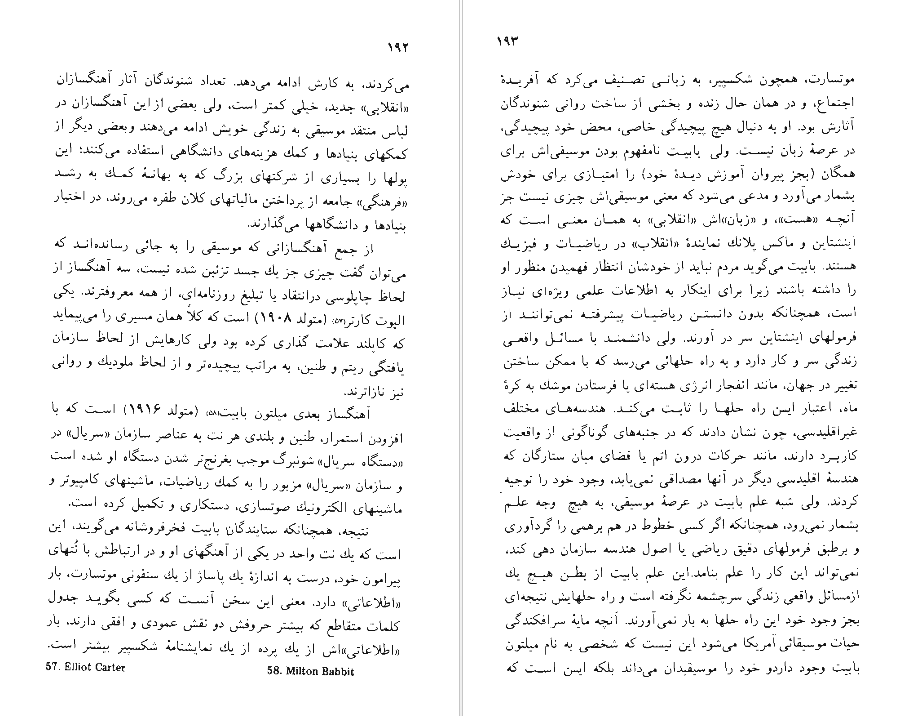 ۱۹۲
می‌کردند، به کارش ادامه می‌دهد. تعداد شنوندگان آثار آهنگسازان
«انقلابی» جدید، خیلی کمتر است، ولی بعضی از این آهنگسازان در
لباس منتقد موسیقی به زندگی خویش ادامه می‌دهند وبعضی دیگر از
کمکهای بنیادها و کمك هزینه‌های دانشگاهی استفاده می‌کنند؛ این
پولها را بسیاری از شرکتهای بزرگ که به بهانهٔ کمك به رشد
«فرهنگی» جامعه از پرداختن مالیاتهای کلان طفره می‌روند، در اختیار
بنیادها و دانشگاهها می‌گذارند.
از جمع آهنگسازانی که موسیقی را به جائی رسانده‌اند که
می‌توان گفت چیزی جز یك جسد تزئین شده نیست، سه آهنگساز از
لحاظ چاپلوسی درانتقاد یا تبلیغ روزنامه‌ای، از همه معروفترند. یکی
الیوت کارتر(۵۷) (متولد ۱۹۰۸) است که کلاً همان مسیری را می‌پیماید
که کاپلند علامت گذاری کرده بود ولی کارهایش از لحاظ سازمان
یافتگی ریتم و طنین، به مراتب پیچیده‌تر و از لحاظ ملودیك و روانی
نیز نازاترند.
آهنگساز بعدی میلتون بابیت(۵۸) (متولد ۱۹۱۶) است که با
افزودن استمرار، طنین و بلندی هر نت به عناصر سازمان «سریال» در
«دستگاه سریال» شونبرگ موجب بغرنج‌تر شدن دستگاه او شده است
و سازمان «سریال» مزبور را به کمك ریاضیات، ماشینهای کامپیوتر و
ماشینهای الکترونیك صوتسازی، دستکاری و تکمیل کرده است.
نتیجه، همچنانکه ستایندگان بابیت فخرفروشانه می‌گویند، این
است که یك نت واحد در یکی از آهنگهای او و در ارتباطش با نُتهای
پیرامون خود، درست به اندازهٔ یك پاساژ از یك سنفونی موتسارت، بار
«اطلاعاتی» دارد. معنی این سخن آنست که کسی بگوید جدول
کلمات متقاطع که بیشتر حروفش دو نقش عمودی و افقی دارند، بار
«اطلاعاتی»اش از یك پرده از یك نمایشنامهٔ شکسپیر بیشتر است.
57. Elliot Carter 58. Milton Babbit
۱۹۳
موتسارت، همچون شکسپیر، به زبانی تصنیف می‌کرد که آفریدهٔ
اجتماع، و در همان حال زنده و بخشی از ساخت روانی شنوندگان
آثارش بود. او به دنبال هیچ پیچیدگی خاصی، محض خود پیچیدگی،
در عرصهٔ زبان نیست. ولی بابیت نامفهوم بودن موسیقی‌اش برای
همگان (بجز پیروان آموزش دیدهٔ خود) را امتیازی برای خودش
بشمار می‌آورد و مدعی می‌شود که معنی موسیقی‌اش چیزی نیست جز
آنچه «هست»، و «زبان»اش «انقلابی» به همان معنی است که
اینشتاین و ماکس پلانك نمایندهٔ «انقلاب» در ریاضیات و فیزیك
هستند. بابیت می‌گوید مردم نباید از خودشان انتظار فهمیدن منظور او
را داشته باشند زیرا برای اینکار به اطلاعات علمی ویژه‌ای نیاز
است، همچنانکه بدون دانستن ریاضیات پیشرفته نمی‌توانند از
فرمولهای اینشتاین سر در آورند. ولی دانشمند با مسائل واقعی
زندگی سر و کار دارد و به راه حلهائی می‌رسد که با ممکن ساختن
تغییر در جهان، مانند انفجار انرژی هسته‌ای یا فرستادن موشك به کرهٔ
ماه، اعتبار این راه حلها را ثابت می‌کند. هندسه‌های مختلف
غیراقلیدسی، چون نشان دادند که در جنبه‌های گوناگونی از واقعیت
کاربرد دارند، مانند حرکات درون اتم یا فضای میان ستارگان که
هندسهٔ اقلیدسی دیگر در آنها مصداقی نمی‌یابد، وجود خود را توجیه
کردند. ولی شبه علم بابیت در عرصهٔ موسیقی، به هیچ وجه علم
بشمار نمی‌رود، همچنانکه اگر کسی خطوط در هم برهمی را گردآوری
و برطبق فرمولهای دقیق ریاضی یا اصول هندسه سازمان دهی کند،
نمی‌تواند این کار را علم بنامد.این علم بابیت از بطن هیچ یك
ازمسائل واقعی زندگی سرچشمه نگرفته است و راه حلهایش نتیجه‌ای
بجز وجود خود این راه حلها به بار نمی‌آورند. آنچه مایهٔ سرافکندگی
حیات موسیقائی آمریکا می‌شود این نیست که شخصی به نام میلتون
بابیت وجود داردو خود را موسیقیدان می‌داند بلکه این است که